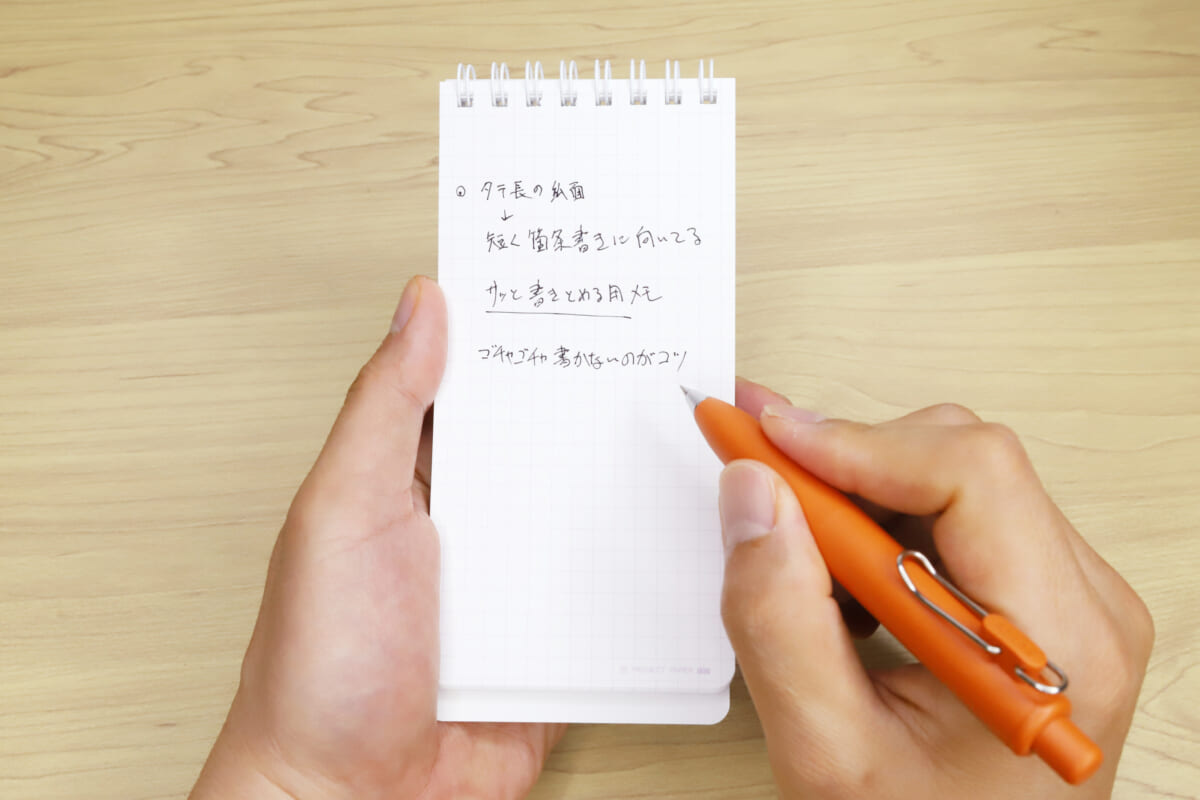 ⊙ タテ長の紙面
↓
短く箇条書きに向いてる
サッと書きとめる用メモ
ゴチャゴチャ書かないのがコツ
PROJECT PAPER